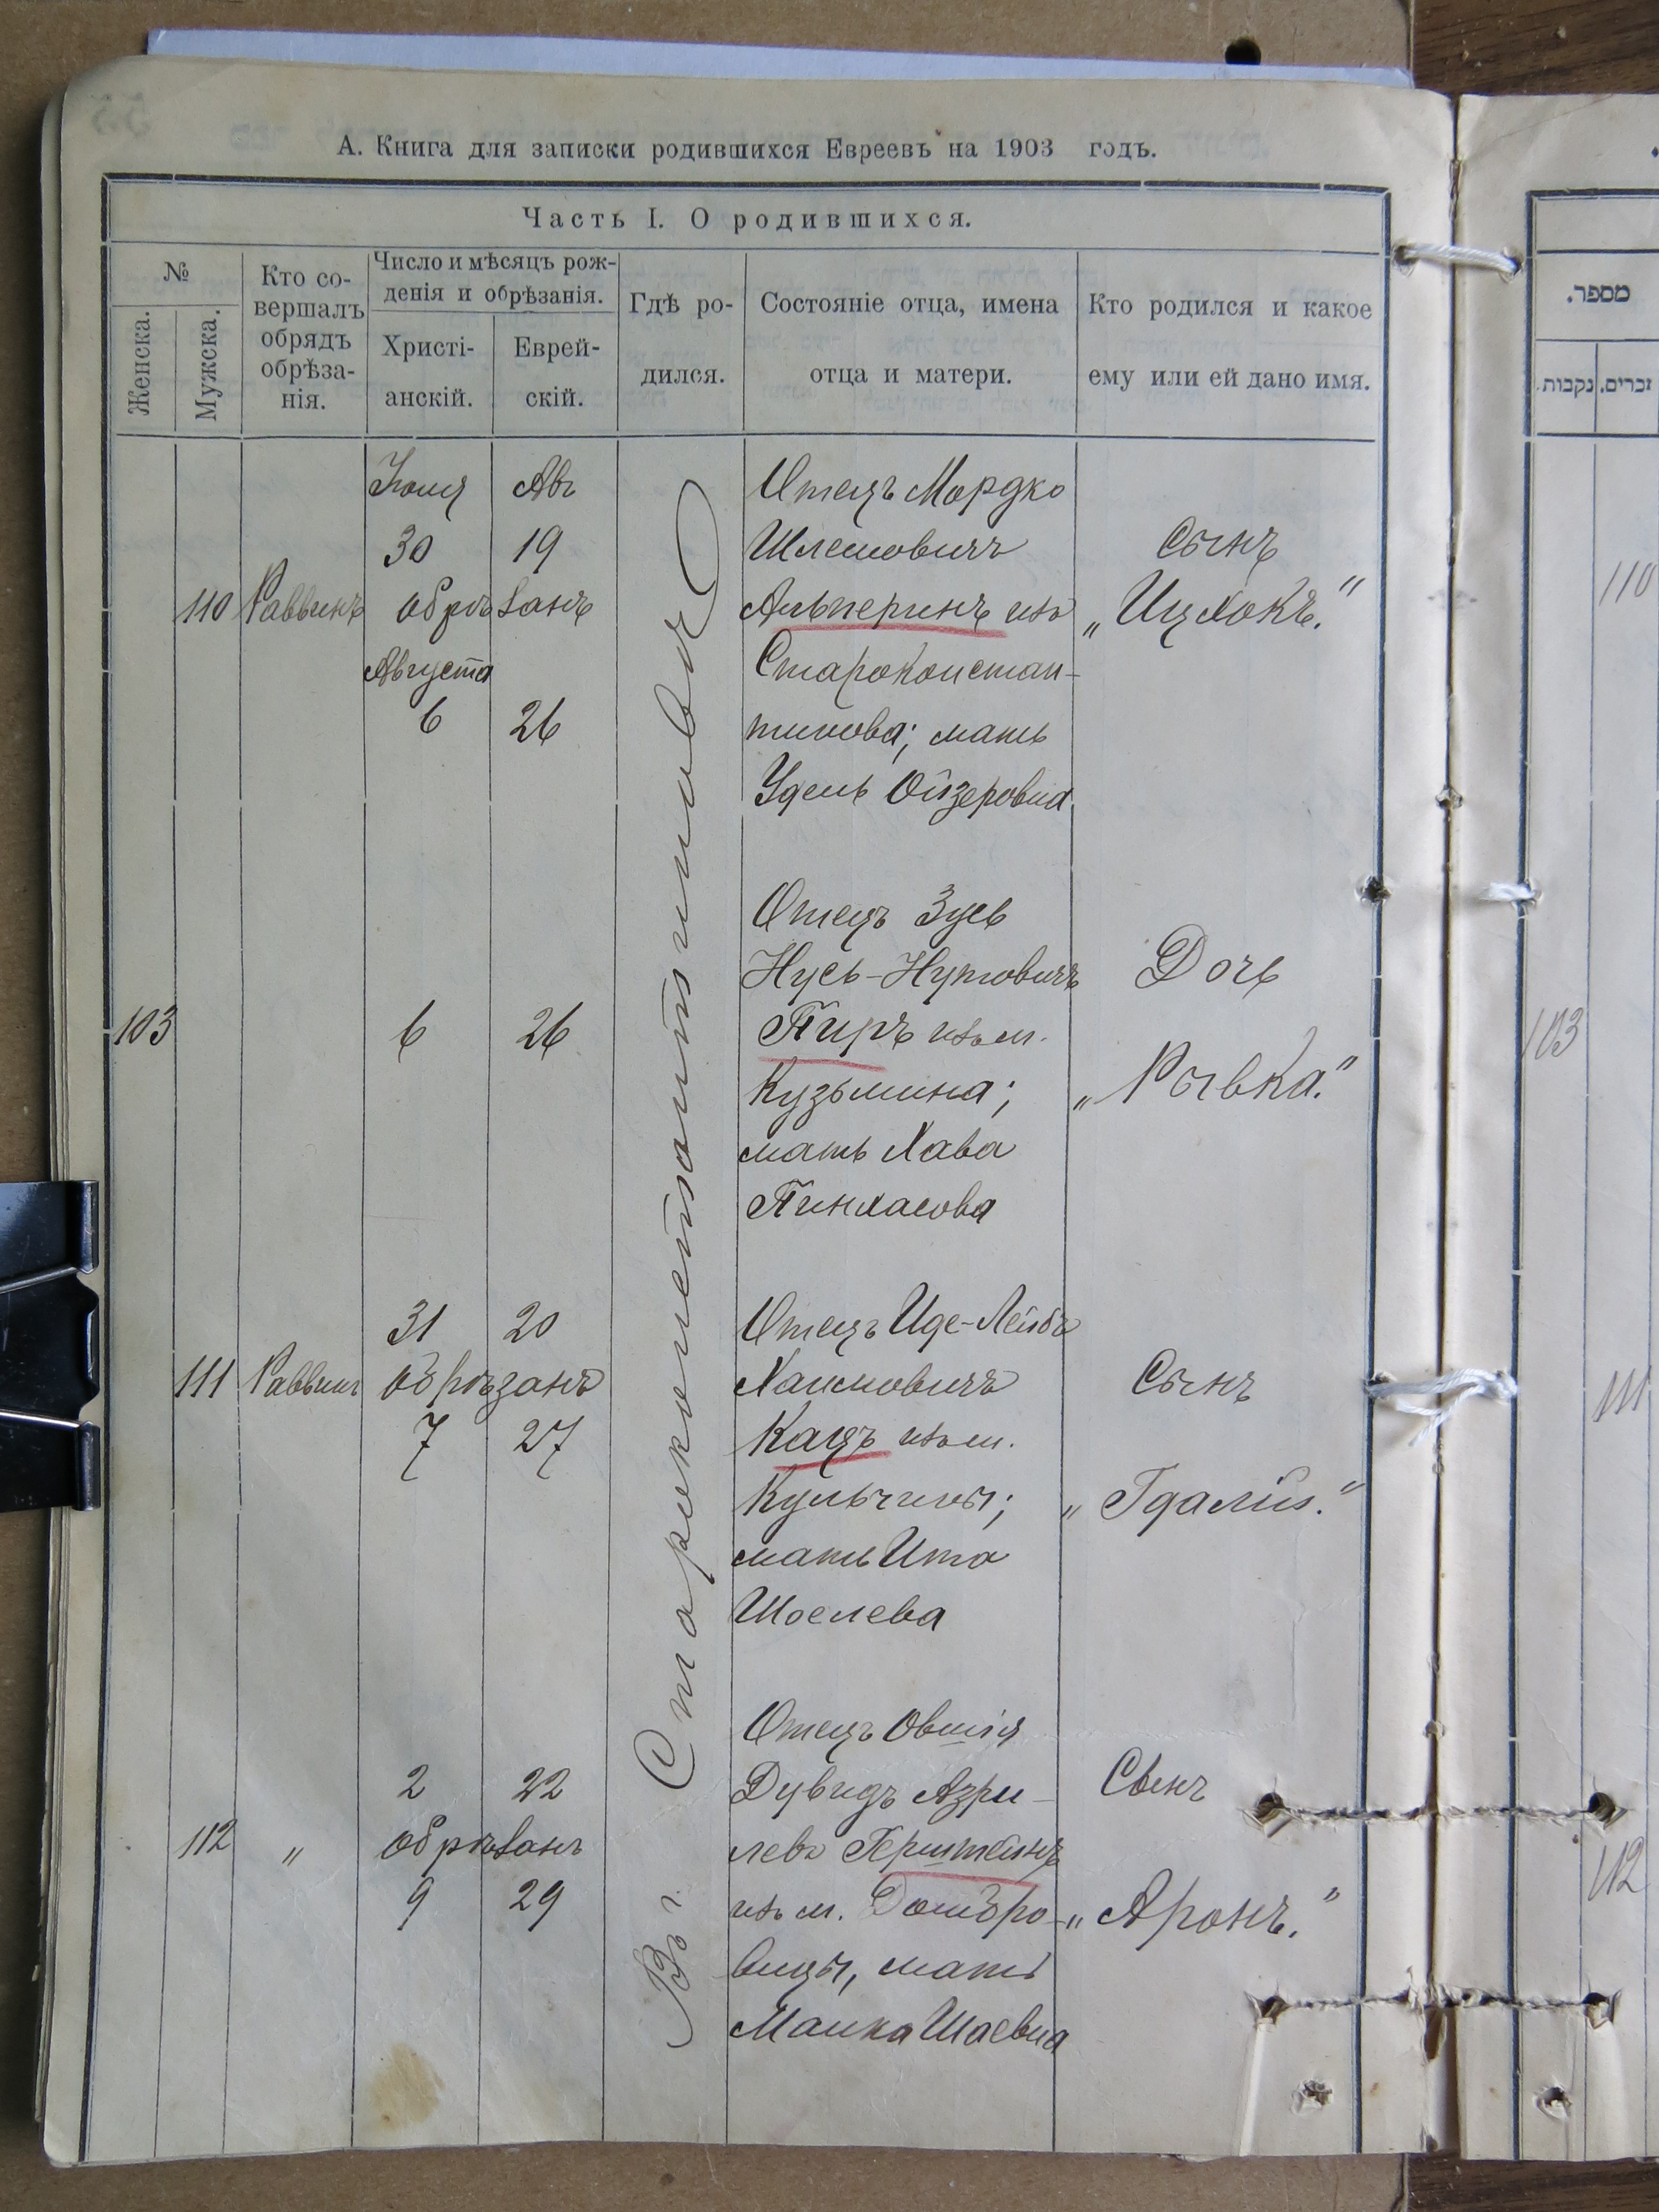 А. Книга для записки родившихся Евреевъ на 1903 годъ.
Часть I. О родившихся.
№
Женска.
Мужска.
Кто со-
вершалъ
обрядъ
обрѣза-
нія.
Число и мѣсяцъ рож-
денія и обрѣзанія.
Христі-
анскій.
Еврей-
скій.
Гдѣ ро-
дился.
Состояніе отца, имена
отца и матери.
Кто родился и какое
ему или ей дано имя.
מספר.
נקבות.
זכרים.
Въ г. Староконстантиновѣ
Іюля Авъ Отецъ Мордко
30 19 Шлемовичъ Сынъ
110 Раввинъ обрѣзанъ Альперинъ изъ „Ицхокъ.“ 110
Августа Староконстан-
6 26 тинова; мать
Удель Ойзеровна
Отецъ Зусь
Нусь-Нутовичъ Дочь
103 6 26 Пиръ изъ м. 103
Кузьмина; „Рывка.“
мать Хава
Пинхасова
31 20 Отецъ Иде-Лейбъ
111 Раввинъ обрѣзанъ Хаимовичъ Сынъ 111
7 27 Кацъ изъ м.
Кульчины; „Гдалія.“
мать Ита
Шоелева
Отецъ Овшія
2 22 Дувидъ Азри- Сынъ
112 „ обрѣзанъ левъ 112
9 29 изъ м. Домбро- „Аронъ.“
вицы, мать
Маика Шаевна